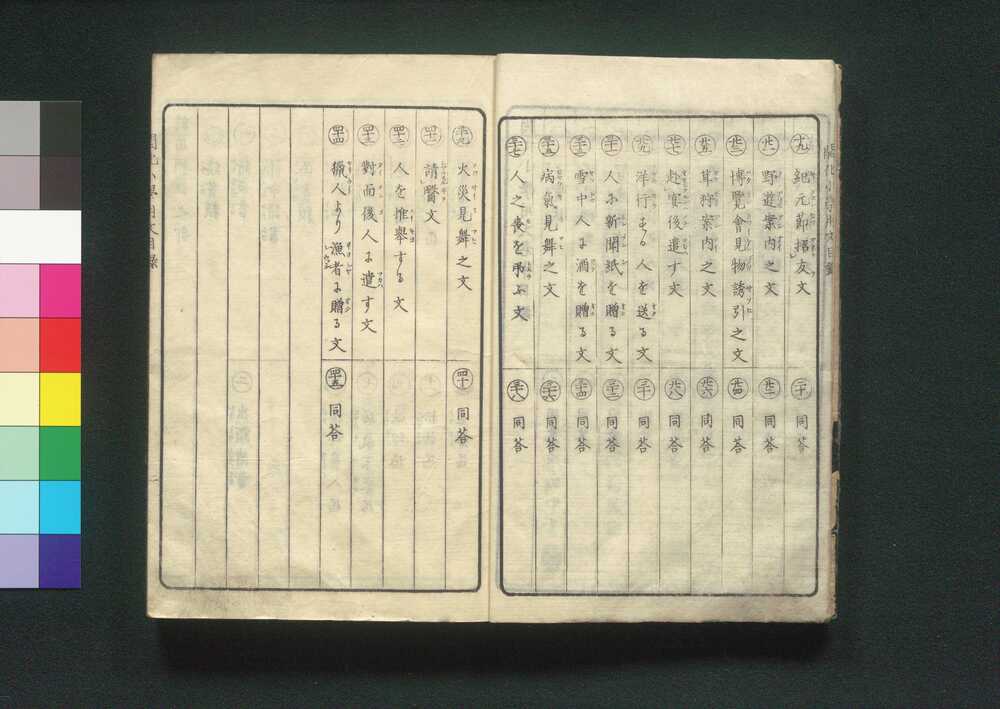 十九 紀元節招友文
二十 同答
廿一 野遊案内之文
廿二 同答
廿三 博覧會見物誘引之文
廿四 同答
廿五 茸狩案内之文
廿六 同答
廿七 赴宴後遣す文
廿八 同答
廿九 洋行する人を送る文
三十 同答
三十一 人に新聞紙を贈る文
三十二 同答
三十三 雪中人に酒を贈る文
三十四 同答
三十五 病氣見舞之文
三十六 同答
三十七 人之喪を吊ふ文
三十八 同答
三十九 火災見舞之文
四十 同答
四十一 請醫文
四十二 人を推舉する文
四十三 對面後人に遣す文
四十四 獵人より漁者に贈る文
四十五 同答